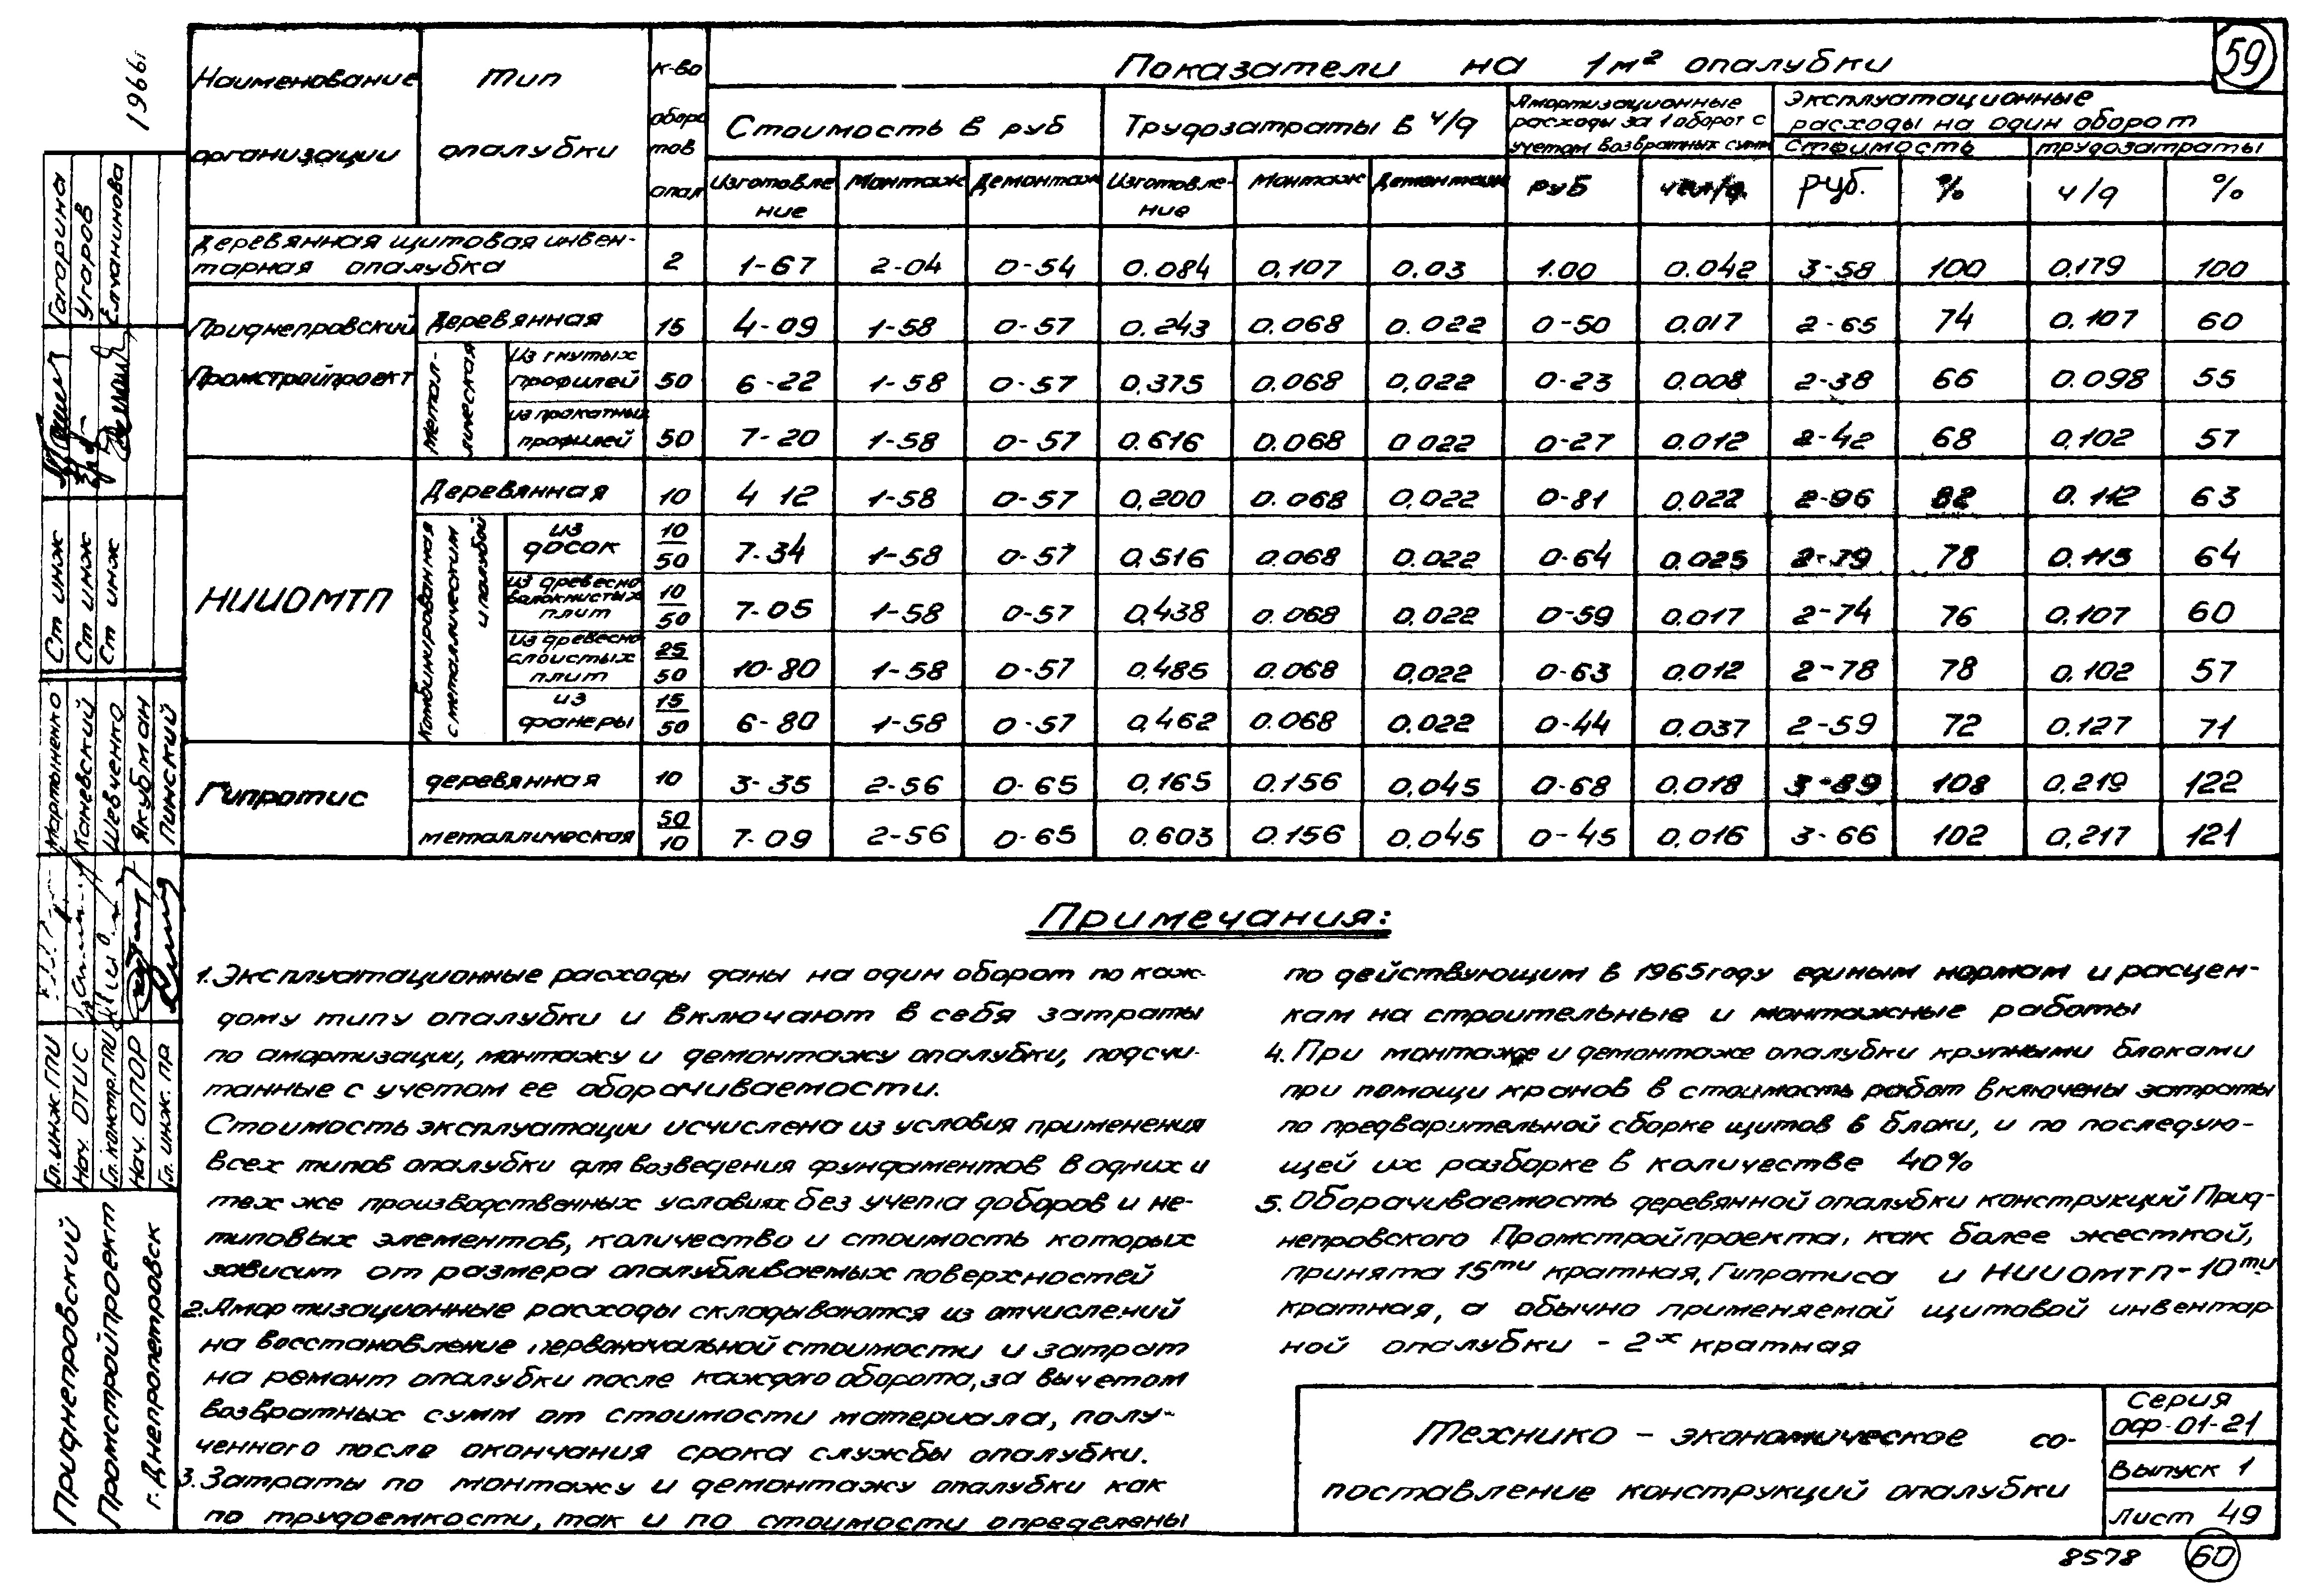 59
1966г
Наименование организации
Тип опалубки
К-во оборотов опал
Показатели на 1м² опалубки
Стоимость в руб
Трудозатраты в ч/д
Амортизационные расходы за 1 оборот с учетом возвратных сумм
Эксплуатационные расходы на один оборот
Стоимость
трудозатраты
Изготовление Монтаж Демонтаж Изготовление Монтаж Демонтаж руб чел/д. руб. % ч/д %
Деревянная щитовая инвентарная опалубка 2 1-67 2-04 0-54 0.084 0,107 0,03 1.00 0.042 3-58 100 0,179 100
Приднепровский Промстройпроект
Деревянная 15 4-09 1-58 0-57 0.243 0.068 0.022 0-50 0.017 2-65 74 0.107 60
Металлическая
Из гнутых профилей 50 6-22 1-58 0-57 0,375 0.068 0,022 0-23 0.008 2-38 66 0.098 55
из прокатных профилей 50 7-20 1-58 0-57 0.616 0.068 0,022 0-27 0.012 2-42 68 0,102 57
НИИОМТП
Деревянная 10 4 12 1-58 0-57 0,200 0.068 0,022 0-81 0.022 2-96 82 0.112 63
Комбинированная с металлическим и палубой
из досок 10/50 7-34 1-58 0-57 0,516 0.068 0.022 0-64 0.025 2-79 78 0.115 64
из древесно волокнистых плит 10/50 7-05 1-58 0-57 0,438 0.068 0.022 0-59 0.017 2-74 76 0.107 60
Из древесно слоистых плит 25/50 10-80 1-58 0-57 0,485 0.068 0,022 0-63 0,012 2-78 78 0.102 57
из фанеры 15/50 6-80 1-58 0-57 0,462 0.068 0.022 0-44 0.037 2-59 72 0.127 71
Гипротис
деревянная 10 3-35 2-56 0-65 0,165 0.156 0,045 0-68 0.018 3-89 108 0,219 122
металлическая 50/10 7-09 2-56 0-65 0.603 0.156 0,045 0-45 0,016 3-66 102 0,217 121
Примечания:
1. Эксплуатационные расходы даны на один оборот по каж-
дому типу опалубки и включают в себя затраты
по амортизации, монтажу и демонтажу опалубки, подсчи-
танные с учетом ее оборачиваемости.
Стоимость эксплуатации исчислена из условия применения
всех типов опалубки для возведения фундаментов в одних и
тех же производственных условиях без учета доборов и не-
типовых элементов, количество и стоимость которых
зависит от размера опалубливаемых поверхностей
2. Амортизационные расходы складываются из отчислений
на восстановление первоначальной стоимости и затрат
на ремонт опалубки после каждого оборота, за вычетом
возвратных сумм от стоимости материала, полу-
ченного после окончания срока службы опалубки.
3. Затраты по монтажу и демонтажу опалубки как
по трудоемкости, так и по стоимости определены
по действующим в 1965 году единым нормам и расцен-
кам на строительные и монтажные работы
4. При монтаже и демонтаже опалубки крупными блоками
при помощи кранов в стоимость работ включены затраты
по предварительной сборке щитов в блоки, и по последую-
щей их разборке в количестве 40%
5. Оборачиваемость деревянной опалубки конструкций Прид-
непровского Промстройпроекта, как более жесткой,
принята 15ти кратная, Гипротиса и НИИОМТП - 10ти
кратная, а обычно применяемой щитовой инвентар
ной опалубки - 2х кратная
Технико - экономическое со-
поставление конструкций опалубки
Серия
ОФ-01-21
Выпуск 1
Лист 49
8578 60
Гагарина
Угаров
Елуканинова
Ст инж
Ст инж
Ст инж
Мартыненко
Каневский
Шевченко
Якубман
Пинский
Гл. инж. ГПИ
Нач. ОТИС
Гл. констр. ГПИ
Нач. ОПОР
Гл. инж. пр
Приднепровский
Промстройпроект
г. Днепропетровск